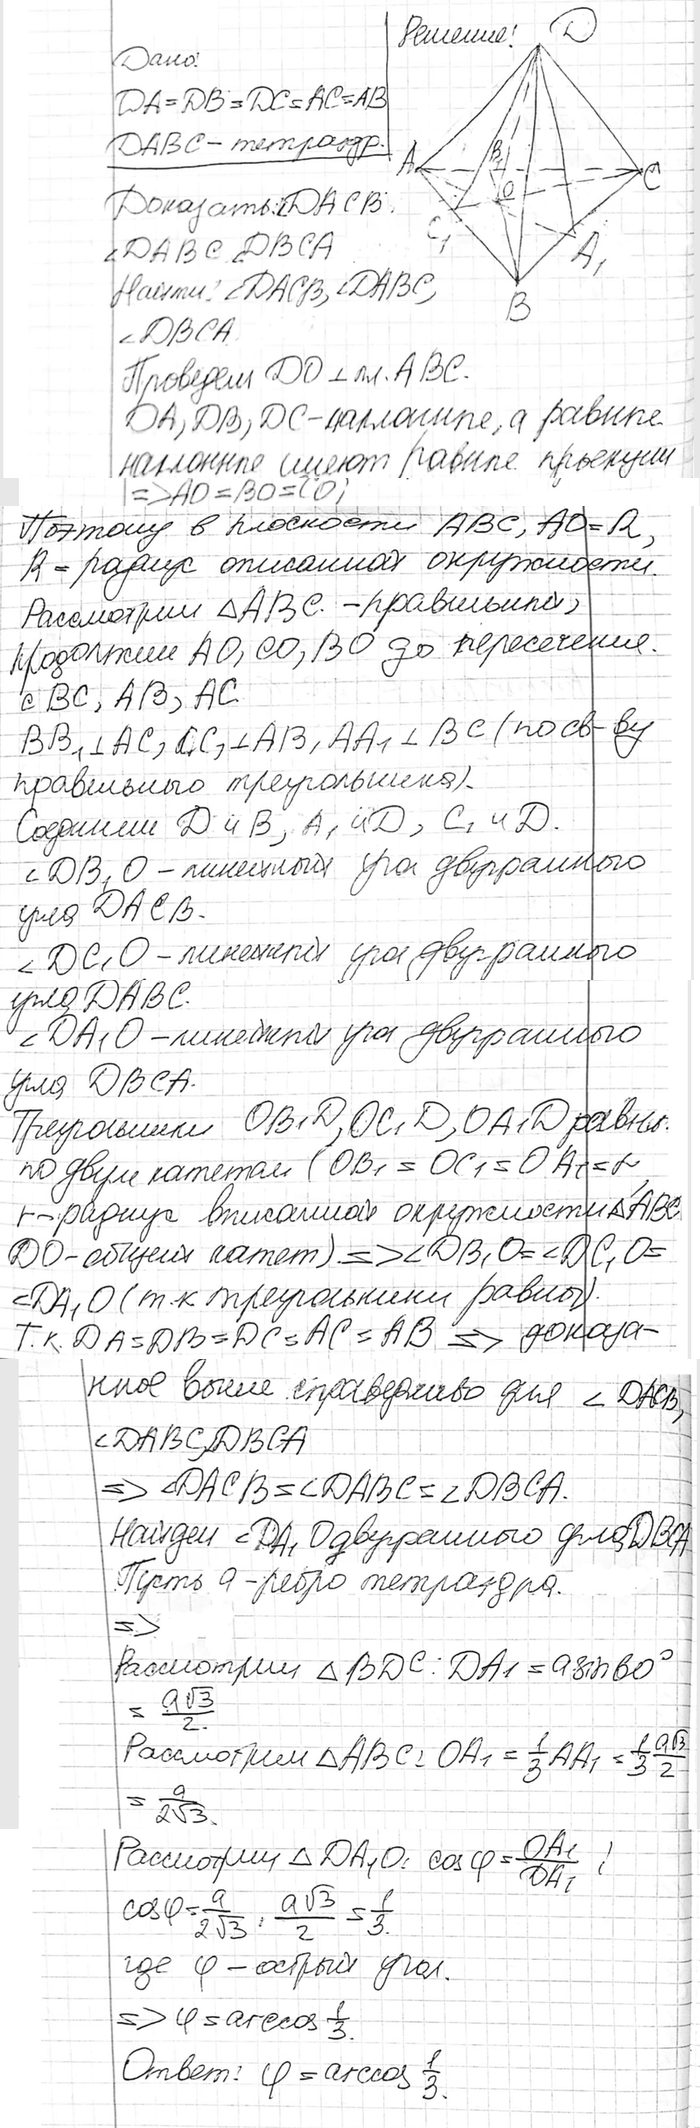 Решение:
D
Дано:
DA=DB=DC=AC=AB
DABC – тетраэдр.
A
B₁
O
C
C₁
A₁
B
Доказать: ∠DACB,
∠DABC, ∠DBCA
Найти: ∠DACB, ∠DABC,
∠DBCA
Проведем DO ⊥ пл. ABC.
DA, DB, DC – наклонные, а равные
наклонные имеют равные проекции
=> AO = BO = CO;
Поэтому в плоскости ABC, AO = R,
R – радиус описанной окружности.
Рассмотрим △ABC – правильный,
продолжим AO, CO, BO до пересечения.
с BC, AB, AC
BB₁⊥AC, CC₁⊥AB, AA₁⊥BC (по св-ву
правильного треугольника).
Соединим D и B, A₁ и D, C₁ и D.
∠DB₁O – линейный угол двугранного
угла DACB.
∠DC₁O – линейный угол двугранного
угла DABC.
∠DA₁O – линейный угол двугранного
угла DBCA.
Треугольники OB₁D, OC₁D, OA₁D равны.
по двум катетам (OB₁ = OC₁ = OA₁ = r,
r – радиус вписанной окружности △ABC
DO – общий катет) => ∠DB₁O = ∠DC₁O =
∠DA₁O (т.к треугольники равны).
Т.к. DA = DB = DC = AC = AB => доказа-
нное выше справедливо для ∠DACB,
∠DABC, DBCA
=> ∠DACB = ∠DABC = ∠DBCA.
Найдем ∠DA₁O двугранного угла DBCA
Пусть a – ребро тетраэдра.
=>
Рассмотрим △BDC: DA₁ = a sin 60°
= a√3/2.
Рассмотрим △ABC: OA₁ = 1/3 AA₁ = 1/3 a√3/2
= a/2√3.
Рассмотрим △DA₁O: cos φ = OA₁/DA₁;
cos φ = a/2√3 : a√3/2 = 1/3.
где φ – острый угол.
=> φ = arccos 1/3.
Ответ: φ = arccos 1/3.